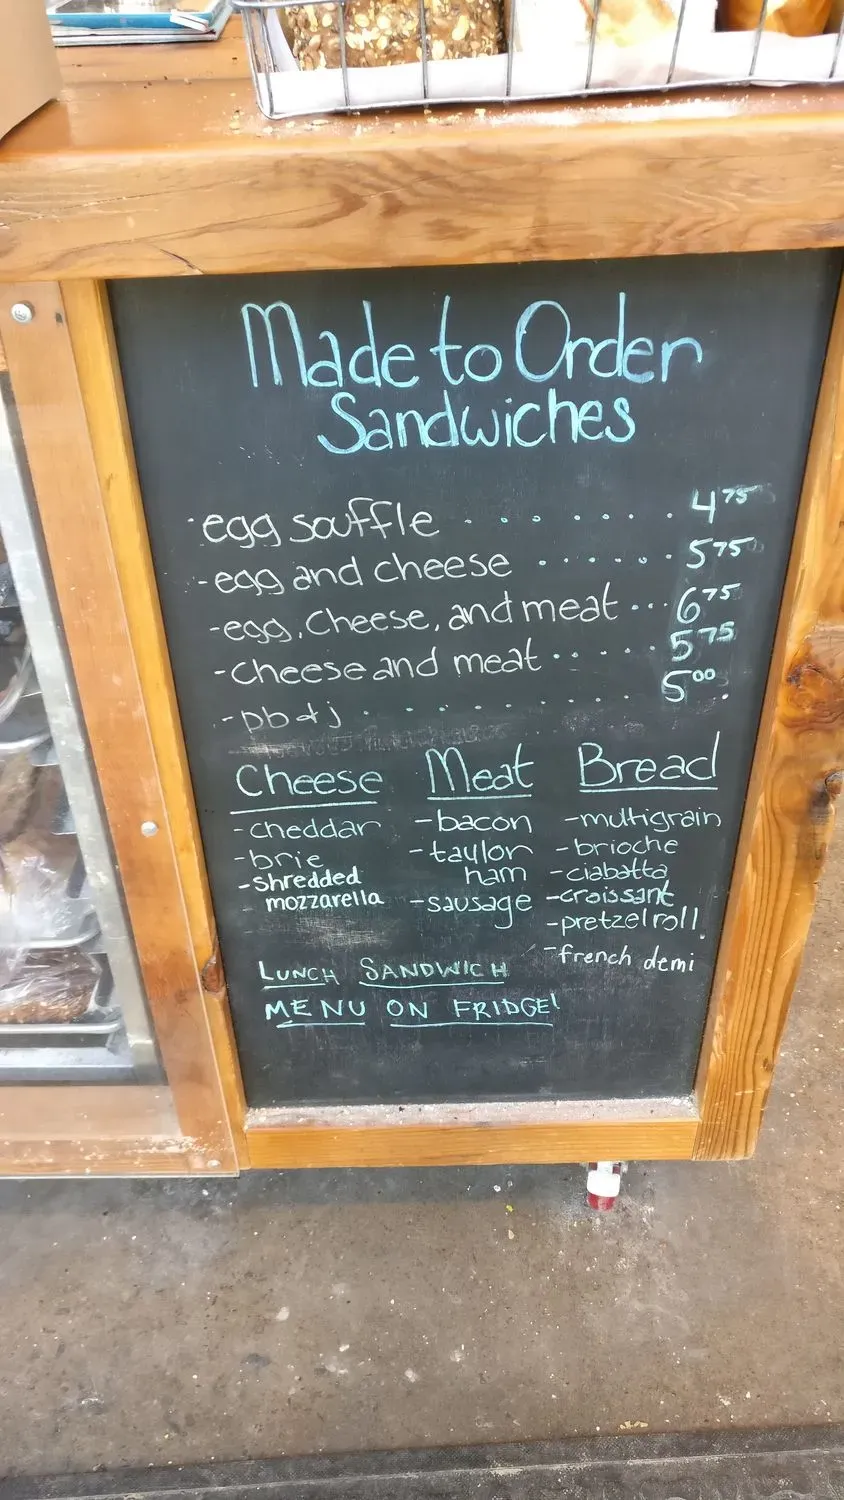 Made to Order
Sandwiches
- egg souffle . . . . . . . . 4 75
- egg and cheese . . . . . . 5 75
- egg, cheese, and meat ... 6 75
- cheese and meat . . . . . 5 75
- pb & j . . . . . . . . . 5 00
Cheese
- cheddar
- brie
- shredded
mozzarella
Meat
- bacon
- taylor
ham
- sausage
Bread
- multigrain
- brioche
- ciabatta
- croissant
- pretzel roll
- french demi
LUNCH SANDWICH
MENU ON FRIDGE!